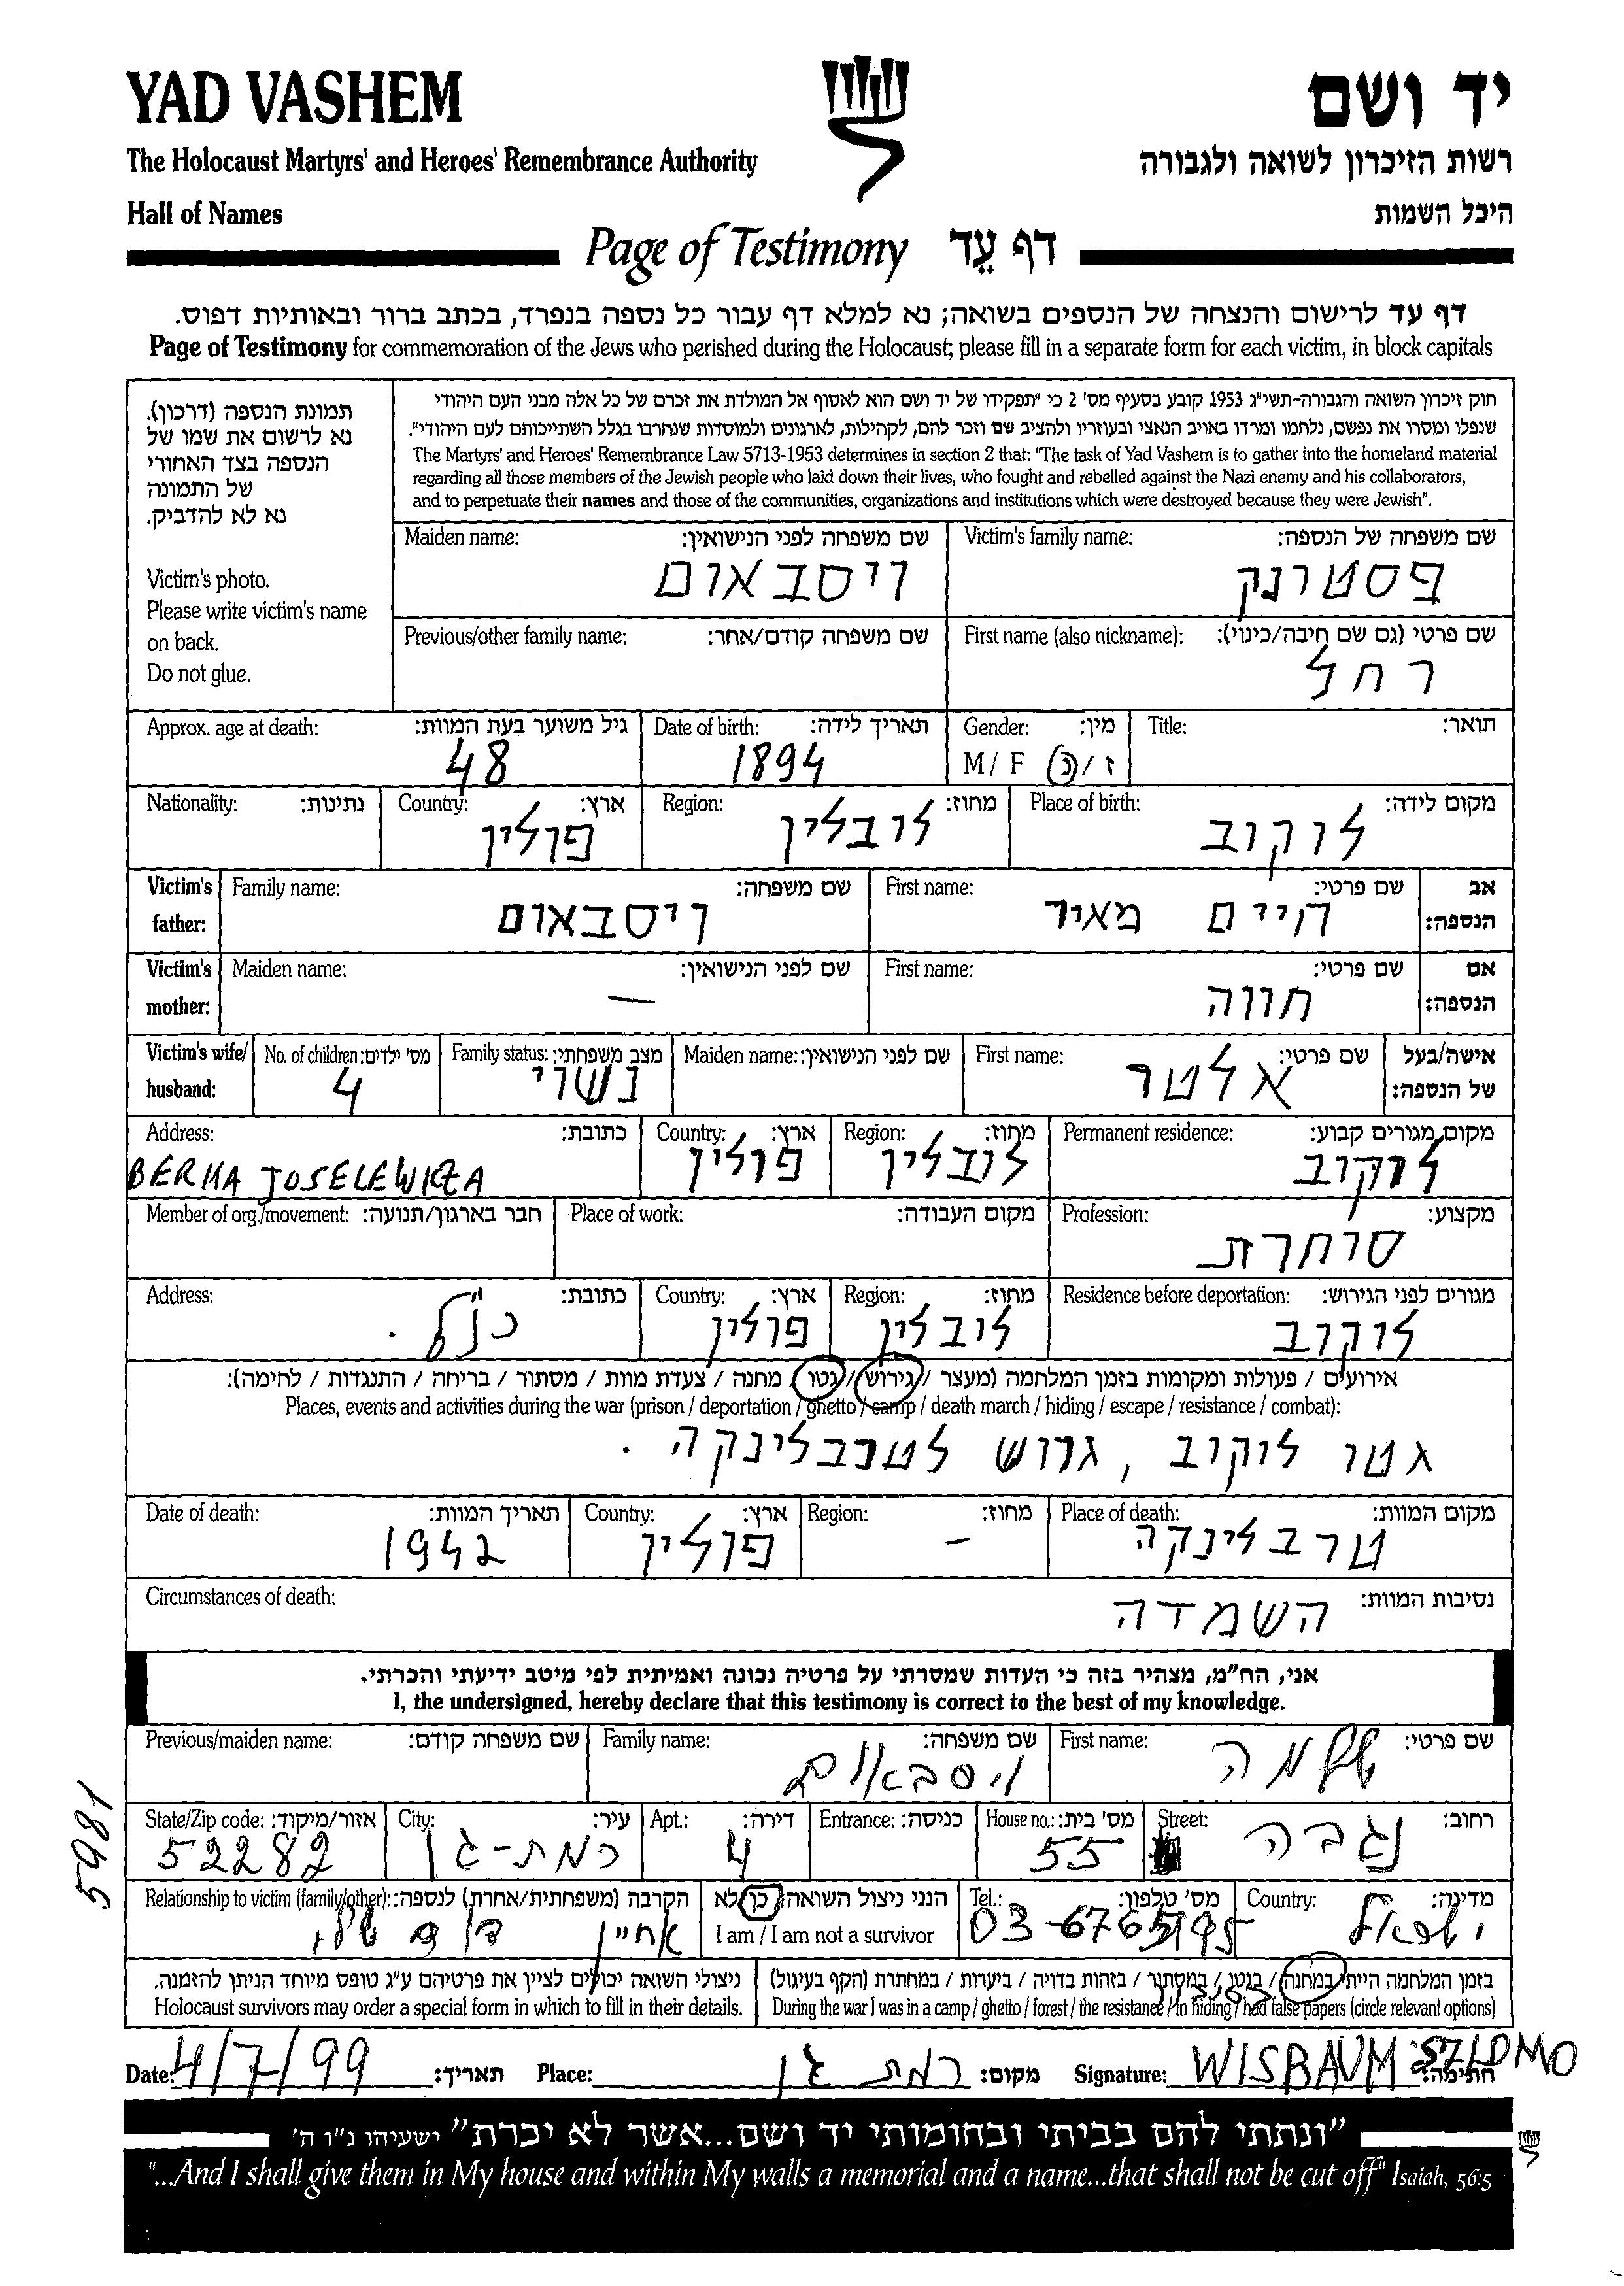 YAD VASHEM
יד ושם
The Holocaust Martyrs' and Heroes' Remembrance Authority
רשות הזיכרון לשואה ולגבורה
Hall of Names
היכל השמות
Page of Testimony דף עֵד
דף עד לרישום והנצחה של הנספים בשואה; נא למלא דף עבור כל נספה בנפרד, בכתב ברור ובאותיות דפוס.
Page of Testimony for commemoration of the Jews who perished during the Holocaust; please fill in a separate form for each victim, in block capitals
תמונת הנספה (דרכון).
נא לרשום את שמו של
הנספה בצד האחורי
של התמונה
נא לא להדביק.
Victim's photo.
Please write victim's name
on back.
Do not glue.
חוק זיכרון השואה והגבורה-תשי"ג 1953 קובע בסעיף מס' 2 כי "תפקידו של יד ושם הוא לאסוף אל המולדת את זכרם של כל אלה מבני העם היהודי
שנפלו ומסרו את נפשם, נלחמו ומרדו באויב הנאצי ובעוזריו ולהציב שם וזכר להם, לקהילות, לארגונים ולמוסדות שנחרבו בגלל השתייכותם לעם היהודי".
The Martyrs' and Heroes' Remembrance Law 5713-1953 determines in section 2 that: "The task of Yad Vashem is to gather into the homeland material
regarding all those members of the Jewish people who laid down their lives, who fought and rebelled against the Nazi enemy and his collaborators,
and to perpetuate their names and those of the communities, organizations and institutions which were destroyed because they were Jewish".
Maiden name: שם משפחה לפני הנישואין: Victim's family name: שם משפחה של הנספה:
ויסבאום פסטרנק
Previous/other family name: שם משפחה קודם/אחר: First name (also nickname): שם פרטי (גם שם חיבה/כינוי):
רחל
Approx. age at death: גיל משוער בעת המוות: Date of birth: תאריך לידה: Gender: מין: Title: תואר:
48 1894 M / F ז / נ
Nationality: נתינות: Country: ארץ: Region: מחוז: Place of birth: מקום לידה:
פולין לובלין לוקוב
Victim's father: Family name: שם משפחה: First name: שם פרטי: אב הנספה:
ויסבאום חיים מאיר
Victim's mother: Maiden name: שם לפני הנישואין: First name: שם פרטי: אם הנספה:
— חווה
Victim's wife/ husband: No. of children: מס' ילדים: Family status: מצב משפחתי: Maiden name: שם לפני הנישואין: First name: שם פרטי: אישה/בעל של הנספה:
4 נשוי אלטר
Address: כתובת: Country: ארץ: Region: מחוז: Permanent residence: מקום מגורים קבוע:
BERKA JOSELEWICZA פולין לובלין לוקוב
Member of org./movement: חבר בארגון/תנועה: Place of work: מקום העבודה: Profession: מקצוע:
סוחרת
Address: כתובת: Country: ארץ: Region: מחוז: Residence before deportation: מגורים לפני הגירוש:
כנ"ל. פולין לובלין לוקוב
אירועים / פעולות ומקומות בזמן המלחמה (מעצר / גירוש / גטו / מחנה / צעדת מוות / מסתור / בריחה / התנגדות / לחימה):
Places, events and activities during the war (prison / deportation / ghetto / camp / death march / hiding / escape / resistance / combat):
גטו לוקוב, גרוש לטרבלינקה.
Date of death: תאריך המוות: Country: ארץ: Region: מחוז: Place of death: מקום המוות:
1942 פולין — טרבלינקה
Circumstances of death: נסיבות המוות:
השמדה
אני, הח"מ, מצהיר בזה כי העדות שמסרתי על פרטיה נכונה ואמיתית לפי מיטב ידיעתי והכרתי.
I, the undersigned, hereby declare that this testimony is correct to the best of my knowledge.
Previous/maiden name: שם משפחה קודם: Family name: שם משפחה: First name: שם פרטי:
ויסבאום שלמה
State/Zip code: אזור/מיקוד: City: עיר: Apt.: דירה: Entrance: כניסה: House no.: מס' בית: Street: רחוב:
52282 רמת-גן 4 55 נגבה
Relationship to victim (family/other): הקרבה (משפחתית/אחרת) לנספה: הנני ניצול השואה: כן/לא Tel.: מס' טלפון: Country: מדינה:
אחיין I am / I am not a survivor 03-6765195 ישראל
ניצולי השואה יכולים לציין את פרטיהם ע"ג טופס מיוחד הניתן להזמנה. בזמן המלחמה הייתי במחנה / בגטו / במסתור / בזהות בדויה / ביערות / במחתרת (הקף בעיגול)
Holocaust survivors may order a special form in which to fill in their details. During the war I was in a camp / ghetto / forest / the resistance / in hiding / had false papers (circle relevant options)
Date: 4/7/99 תאריך: Place: רמת גן מקום: Signature: WISBAUM SZLOMO חתימה:
5981
"ונתתי להם בביתי ובחומותי יד ושם...אשר לא יכרת" ישעיהו נ"ו ה'
"...And I shall give them in My house and within My walls a memorial and a name...that shall not be cut off" Isaiah, 56:5